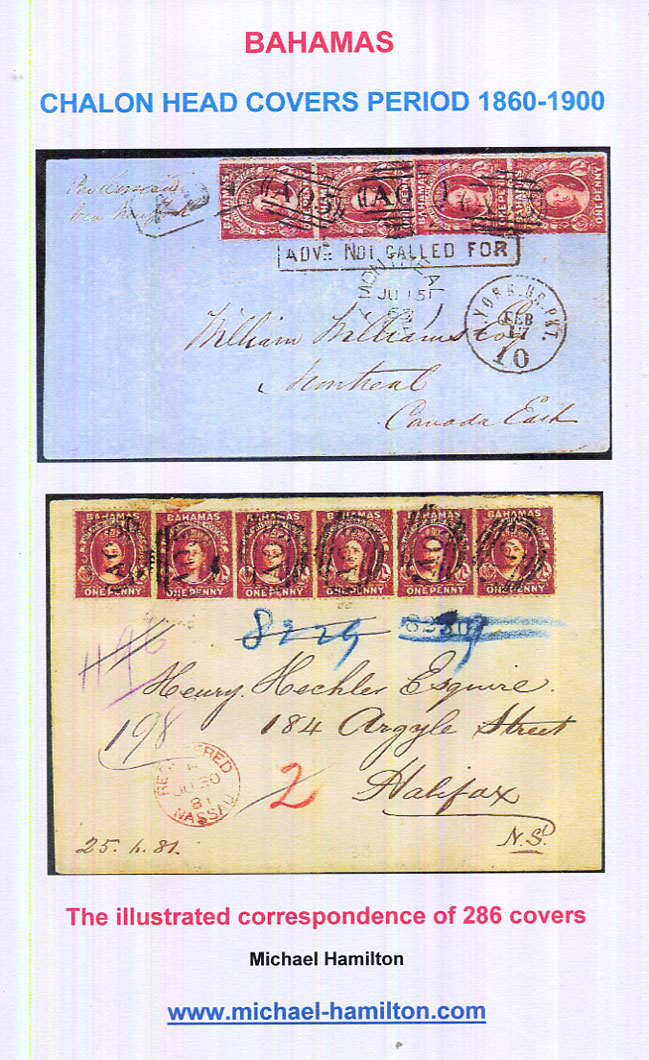 BAHAMAS
CHALON HEAD COVERS PERIOD 1860-1900
A05 A05
BAHAMAS
ONE PENNY ONE PENNY
ADVE NOT CALLED FOR
MONTREAL
JU 15
63
YORK. US. PKT.
FEB
17
10
William Williams
Montreal
Canada East
BAHAMAS BAHAMAS BAHAMAS BAHAMAS BAHAMAS BAHAMAS
ONE PENNY ONE PENNY ONE PENNY ONE PENNY ONE PENNY ONE PENNY
8229
Henry Hechler Esquire
198 184 Argyle Street
REGISTERED
JU 30
81
NASSAU
2
Halifax
N.S.
25. 6. 81.
The illustrated correspondence of 286 covers
Michael Hamilton
www.michael-hamilton.com